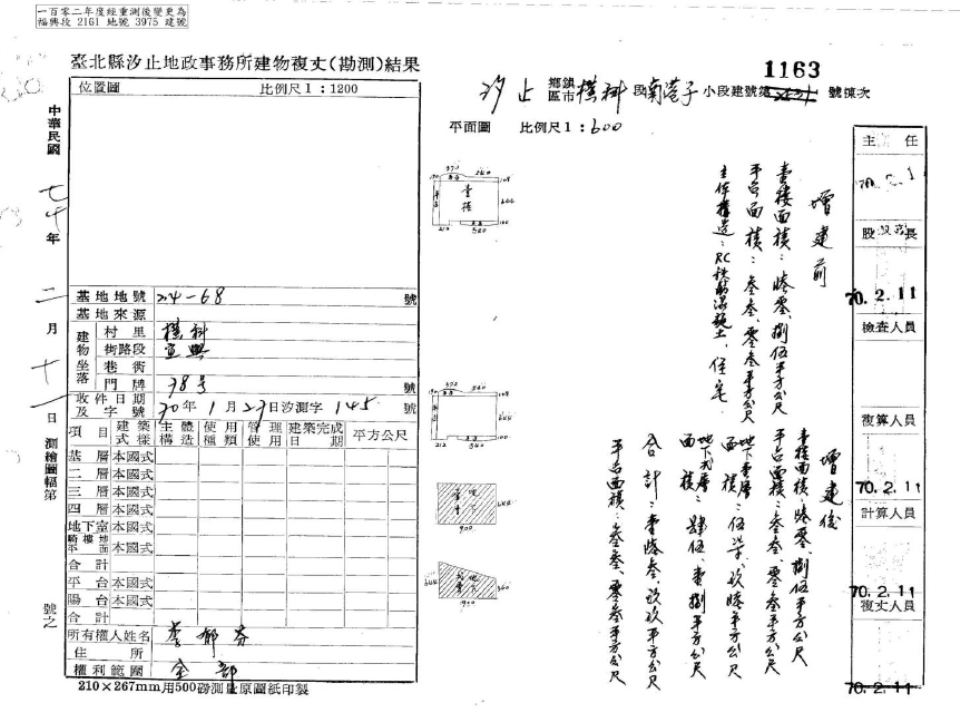 一百零二年度經重測後變更為
福興段 2161 地號 3975 建號
臺北縣汐止地政事務所建物複丈(勘測)結果
位置圖 比例尺1:1200
中華民國七十年二月十一日測繪圖幅第 號之
1163
汐止 鄉鎮區市 樟樹 段 南港子 小段建號第 號棟次
平面圖 比例尺1:600
基地地號 24-68 號
基地來源
建物坐落
村里
街路段 宜興
巷衖
門牌 78号 號
收件日期及字號 70年1月27日汐測字145號
項目 建築式樣 主體構造 使用種類 管理使用 建築完成日期 平方公尺
基層 本國式
二層 本國式
三層 本國式
四層 本國式
地下室 本國式
騎樓地平面 本國式
合計
平台 本國式
陽台 本國式
合計
所有權人姓名 李郁芬
住所
權利範圍 全部
210×267mm用500磅測量原圖紙印製
增建前
壹樓面積:陸零、捌伍平方公尺
平台面積:叁叁、零叁平方公尺
主体構造:RC鉄筋混凝土、住宅
增建後
壹樓面積:陸零、捌伍平方公尺
平台面積:叁叁、零叁平方公尺
地下壹層面積:伍柒、玖陸平方公尺
地下弍層面積:肆伍、壹捌平方公尺
合計:壹陸叁、玖玖平方公尺
平台面積:叁叁、零叁平方公尺
主任
股長
70.2.11
檢查人員
複算人員
70.2.11
計算人員
70.2.11
複丈人員
70.2.11